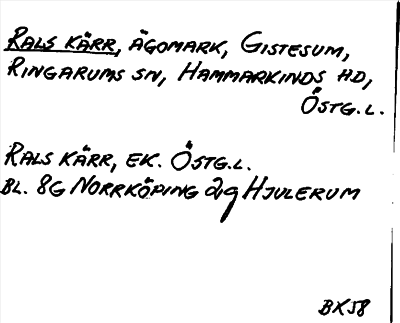 RALS KÄRR, ÄGOMARK, GISTESUM,
RINGARUMS SN, HAMMARKINDS HD,
ÖSTG.L.
RALS KÄRR, EK. ÖSTG.L.
BL. 8G NORRKÖPING HJULERUM
BX58